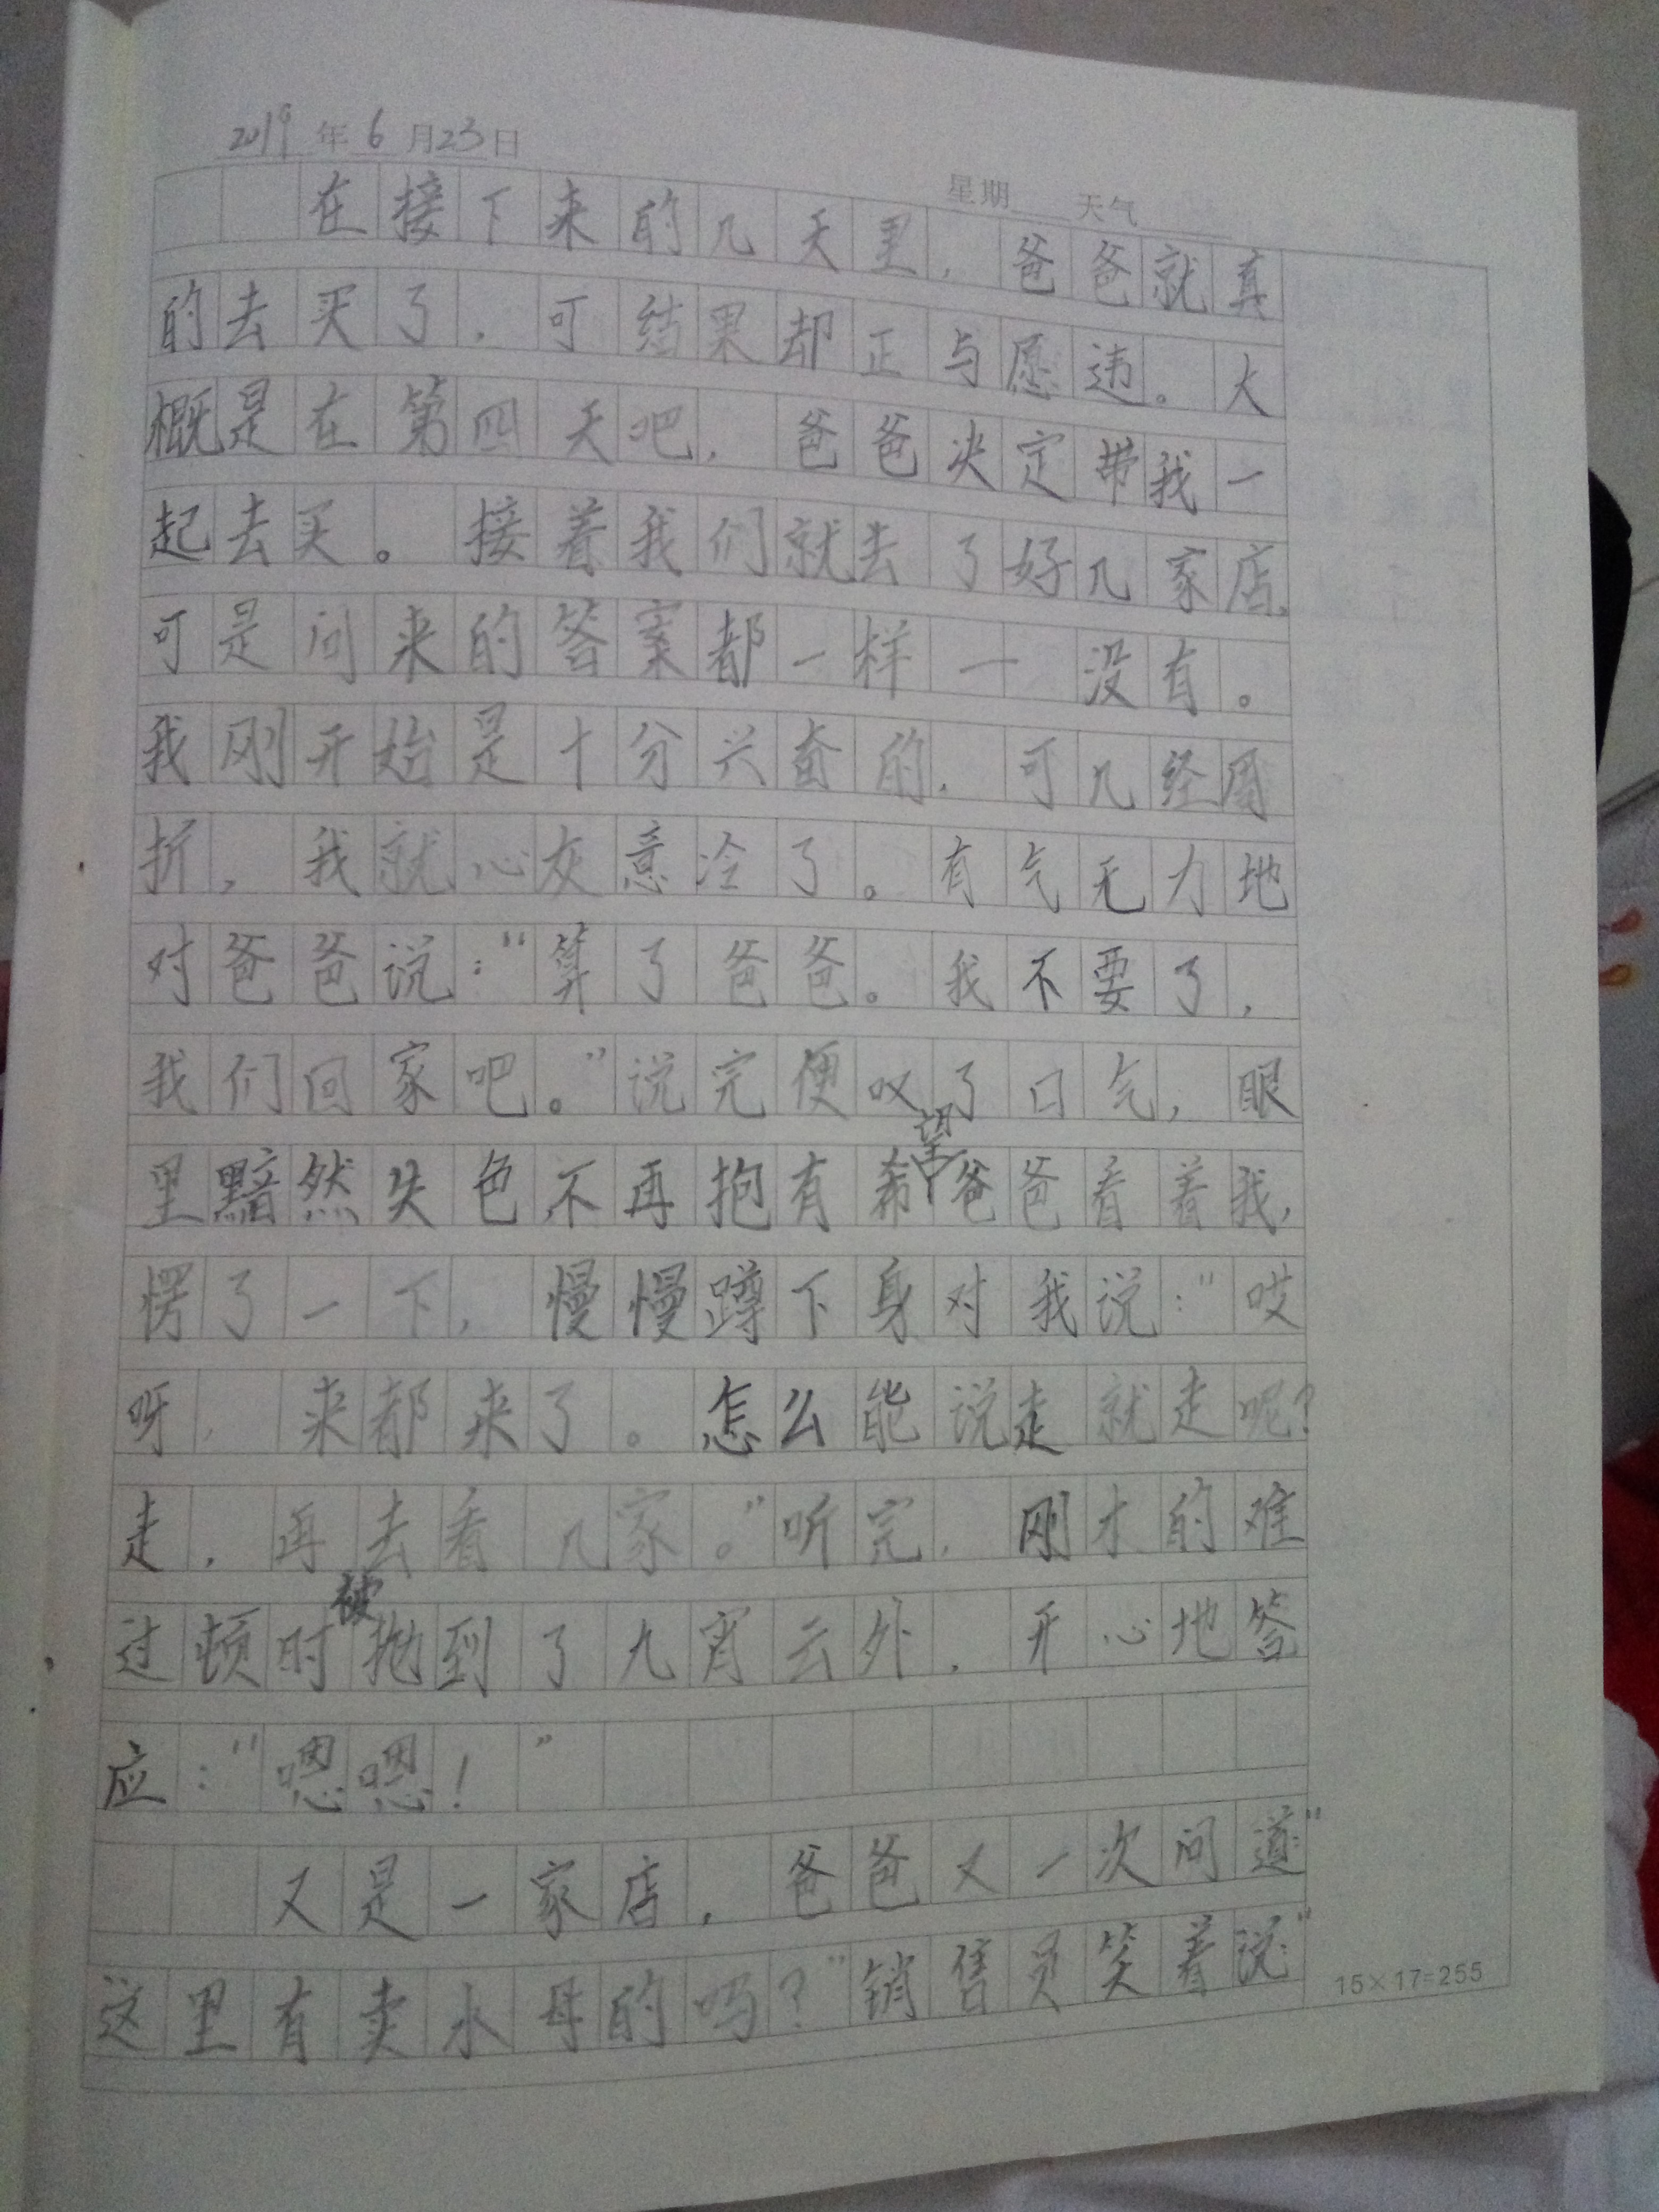 2019年6月23日
星期 天气
在接下来的几天里，爸爸就真
的去买了，可结果却正与愿违。大
概是在第四天吧，爸爸决定带我一
起去买。接着我们就去了好几家店，
可是问来的答案都一样一没有。
我刚开始是十分兴奋的，可几经周
折，我就心灰意冷了。有气无力地
对爸爸说：“算了爸爸。我不要了，
我们回家吧。”说完便叹了口气，眼
里黯然失色不再抱有希望爸爸看着我，
愣了一下，慢慢蹲下身对我说：“哎
呀，来都来了。怎么能说走就走呢？
走，再去看几家。”听完，刚才的难
过顿时被抛到了九宵云外，开心地答
应：“嗯嗯！”
又是一家店，爸爸又一次问道：“
这里有卖水母的吗？”销售员笑着说：“
15×17=255